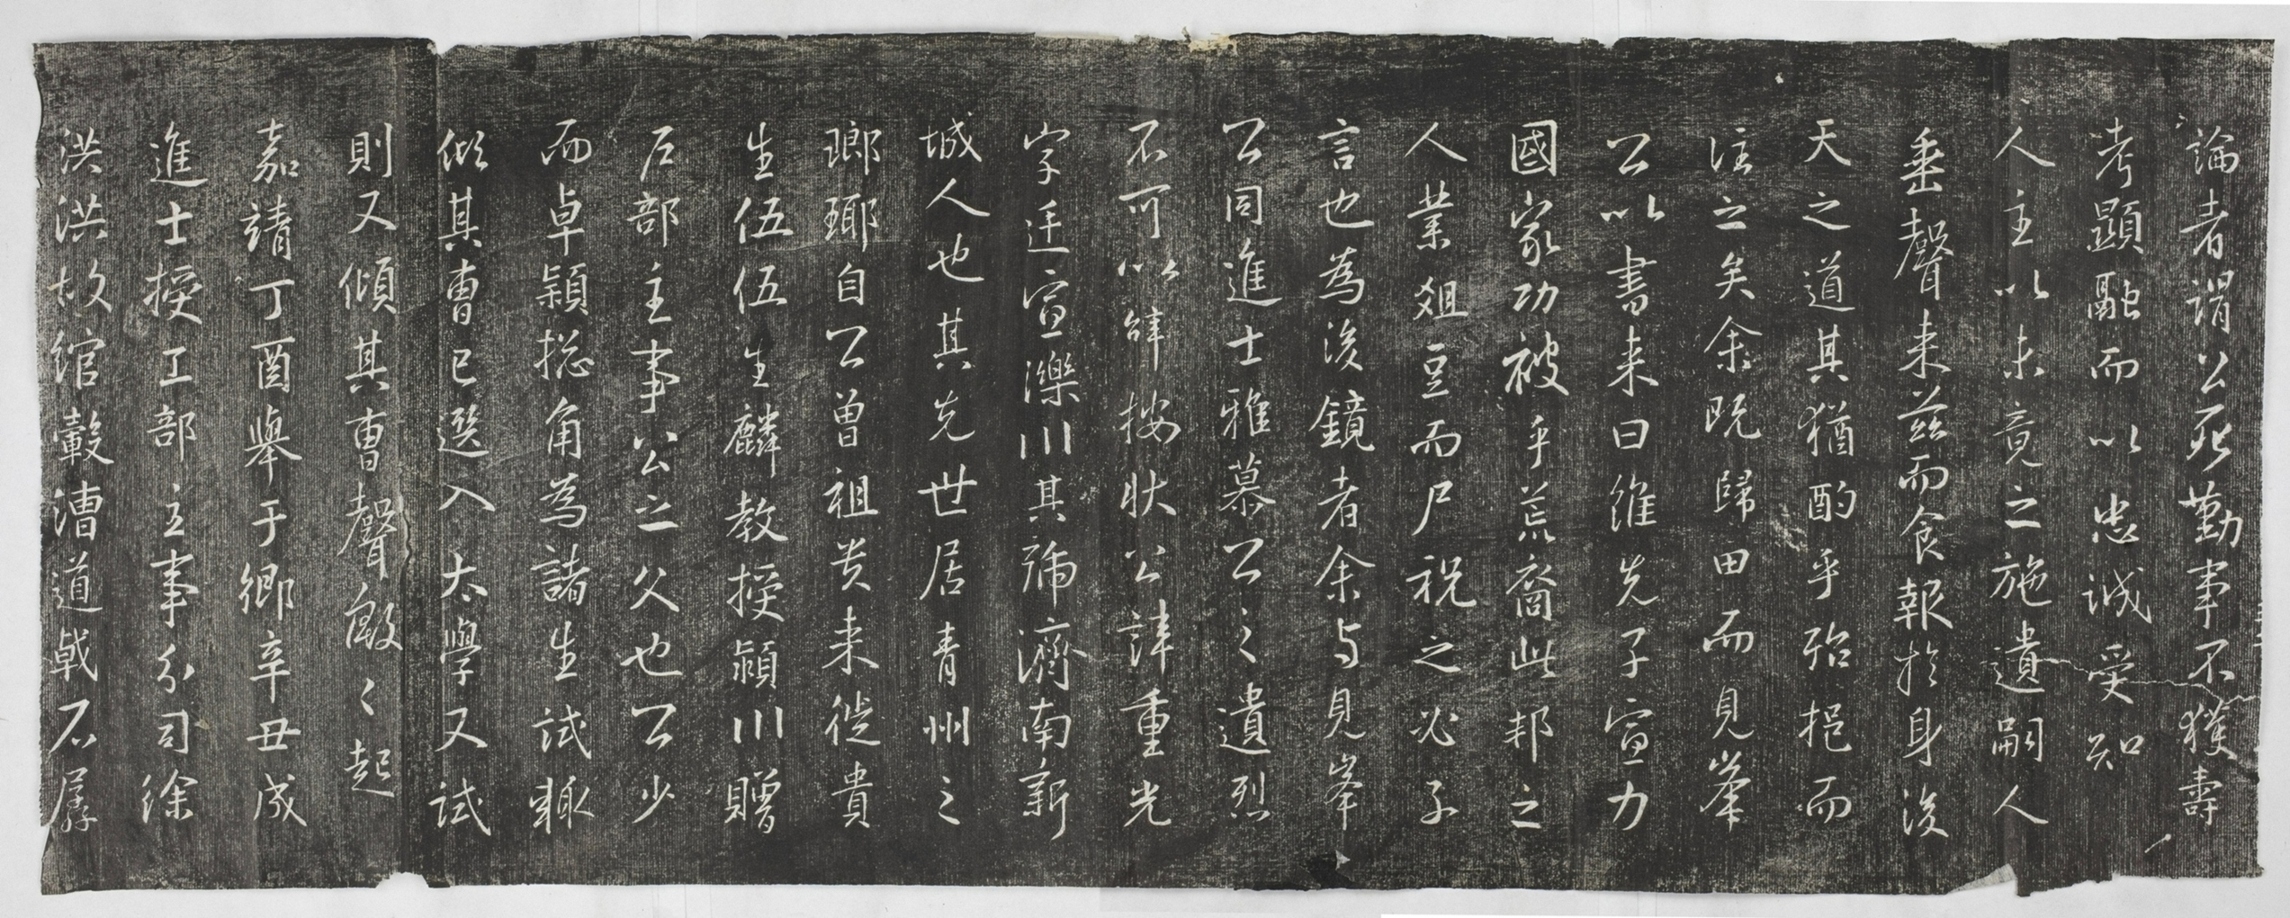 論者謂公死勤事不獲壽
考顯融而以忠誠受知
人主以未竟之施遺嗣人
垂聲来茲而食報於身後
天之道其猶酌乎殆挹而
注之矣余既歸田而見峯
公以書来曰維先子宣力
國家功被乎荒裔此邦之
人業俎豆而尸祝之必子
言也為後鏡者余与見峯
公同進士雅慕公之遺烈
不可以辭按狀公諱重光
字廷宣濼川其號濟南新
城人也其先世居青州之
瑯琊自公曾祖贵来徙貴
生伍伍生麟教授潁川贈
戶部主事公之父也公少
而卓穎捴角為諸生試輒
傾其曹已選入太學又試
則又傾其曹聲殷〻起
嘉靖丁酉舉于鄉辛丑成
進士授工部主事分司徐
洪洪故綰轂漕道戟石孱